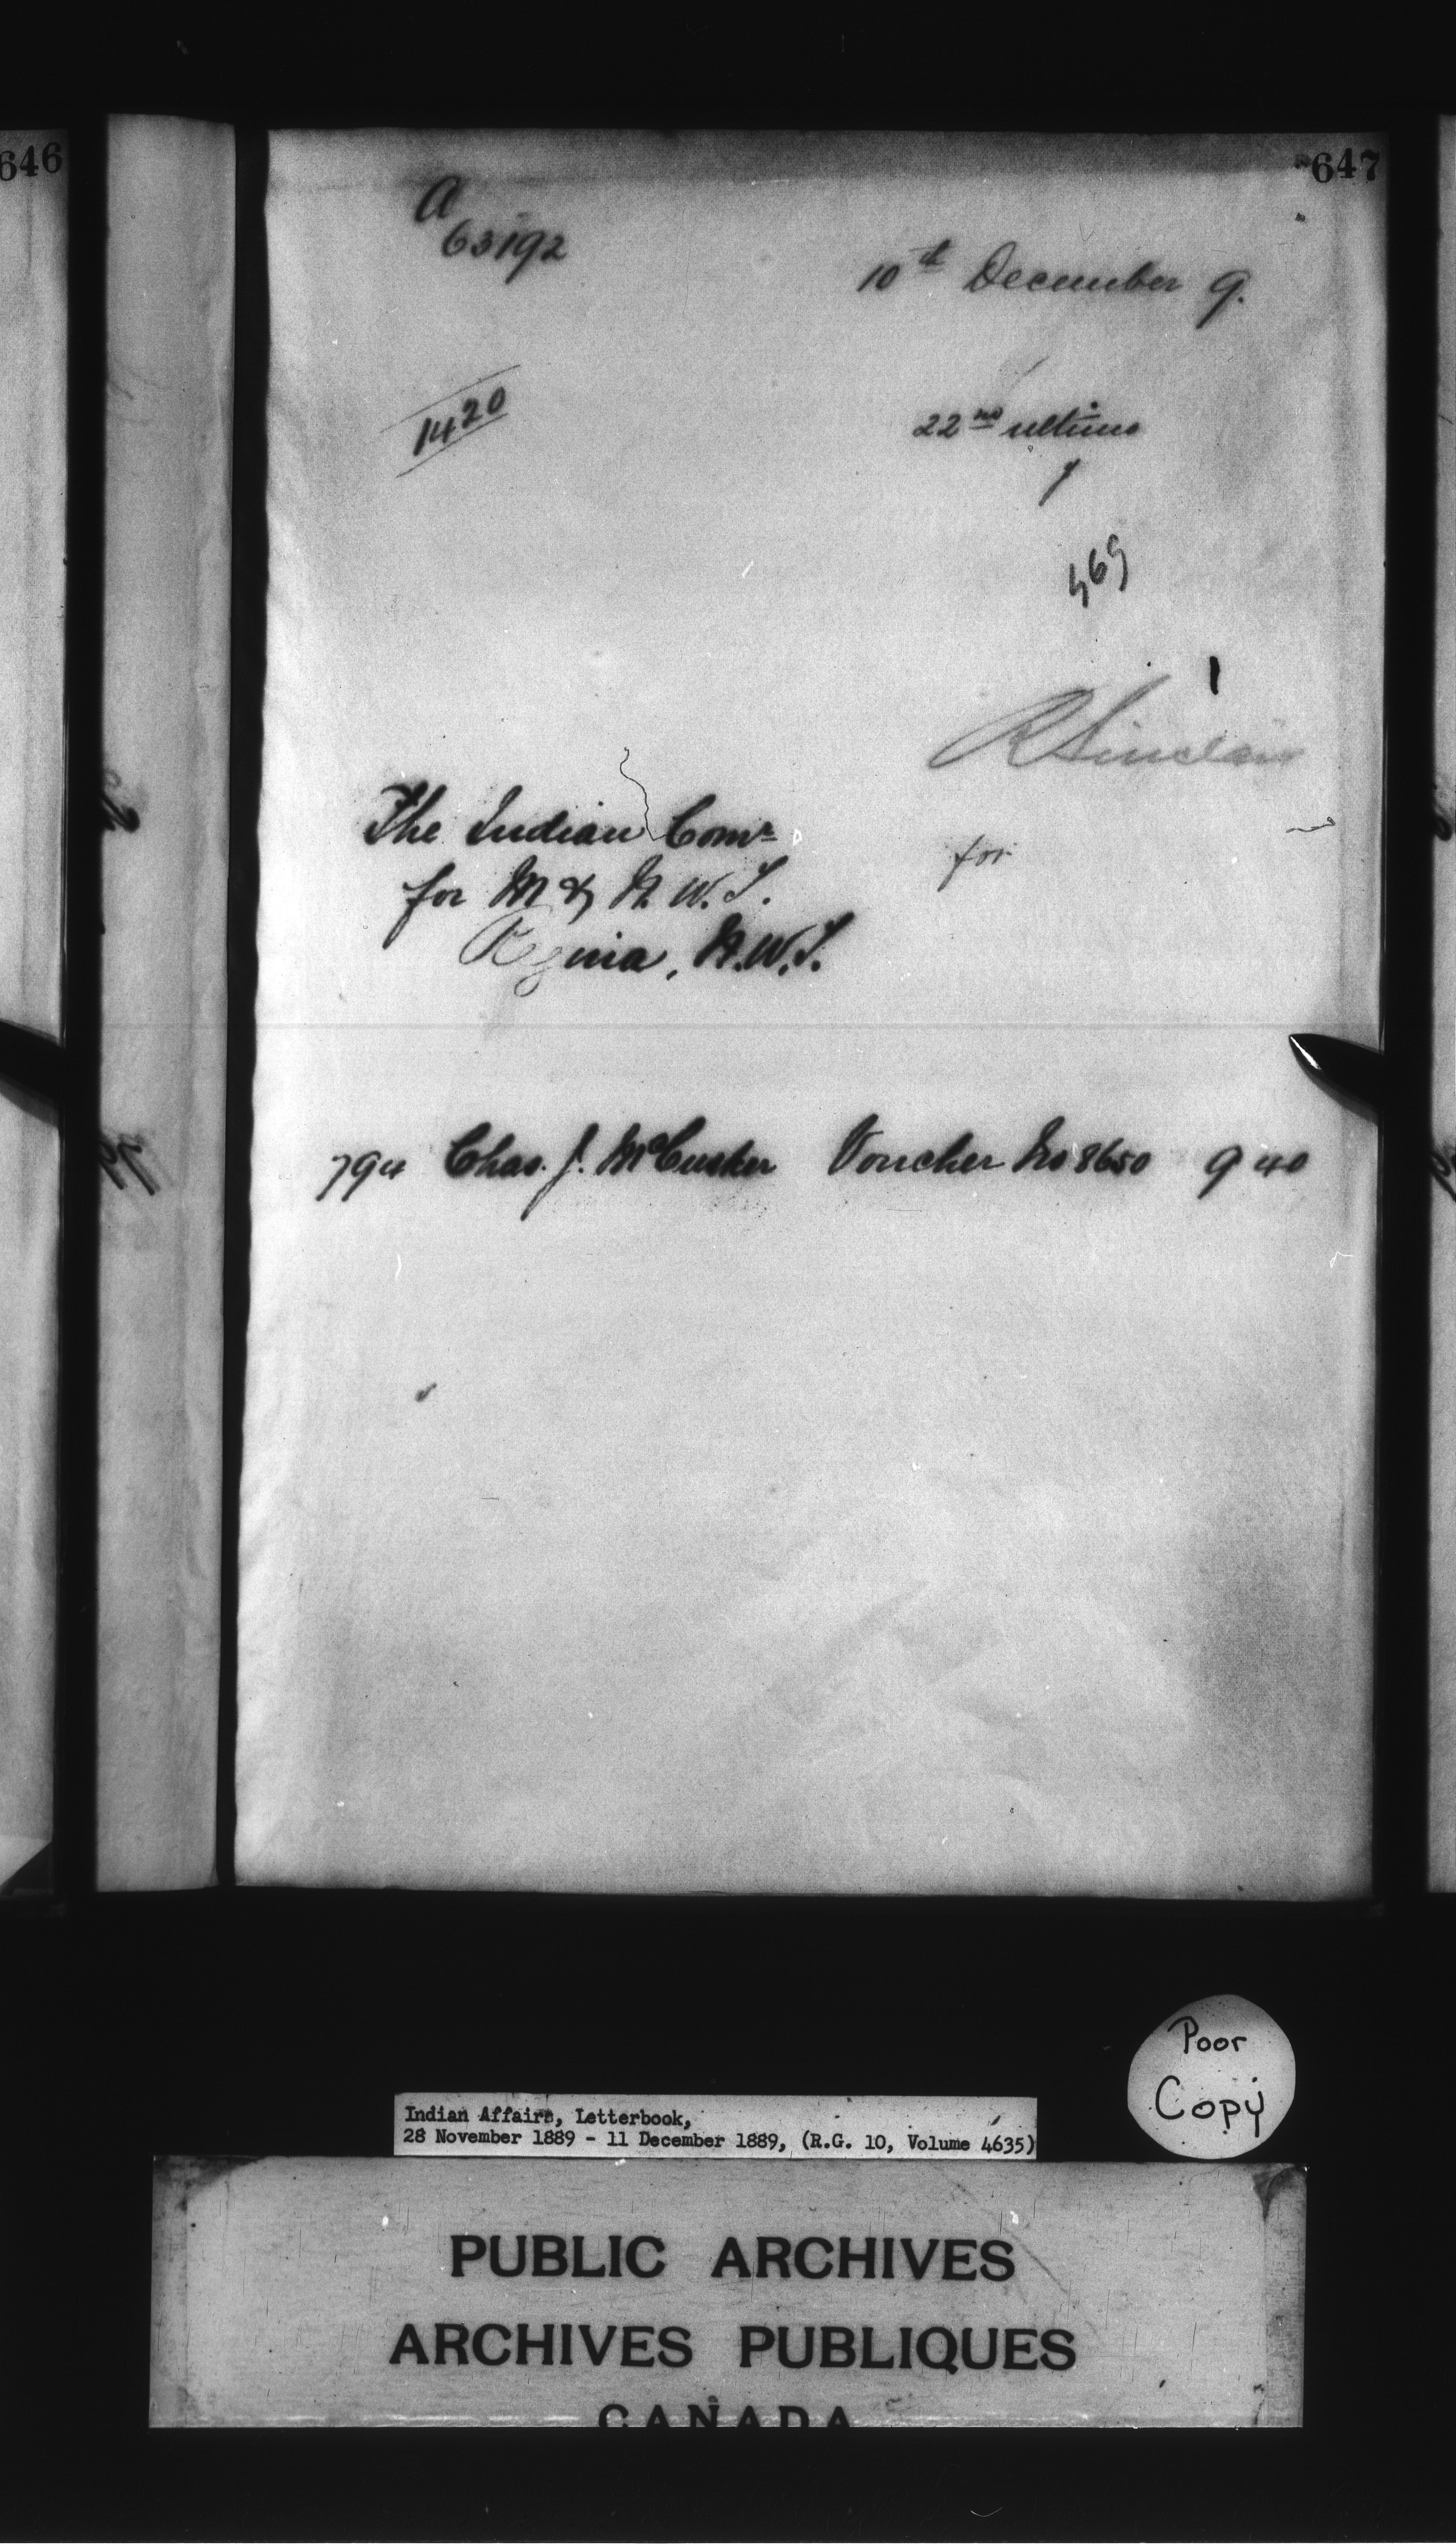 646
647
A
63192
10th December 9.
1420
22nd ultimo
1
469
R Sinclair
The Indian Comr
for M & N. W. T.
Regina, N.W.T.
for
794 Chas. J. McCusker Voucher No 8650 9 40
Poor
Copy
Indian Affairs, Letterbook,
28 November 1889 - 11 December 1889, (R.G. 10, Volume 4635)
PUBLIC ARCHIVES
ARCHIVES PUBLIQUES
CANADA